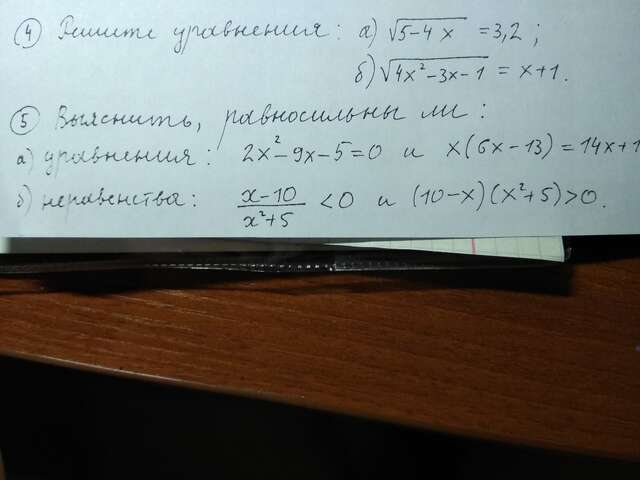 ④ Решите уравнения: а) √5-4x = 3,2;
б) √4x²-3x-1 = x+1.
⑤ Выяснить, равносильны ли:
а) уравнения: 2x²-9x-5=0 и x(6x-13)=14x+1
б) неравенства: x-10/x²+5 <0 и (10-x)(x²+5)>0.